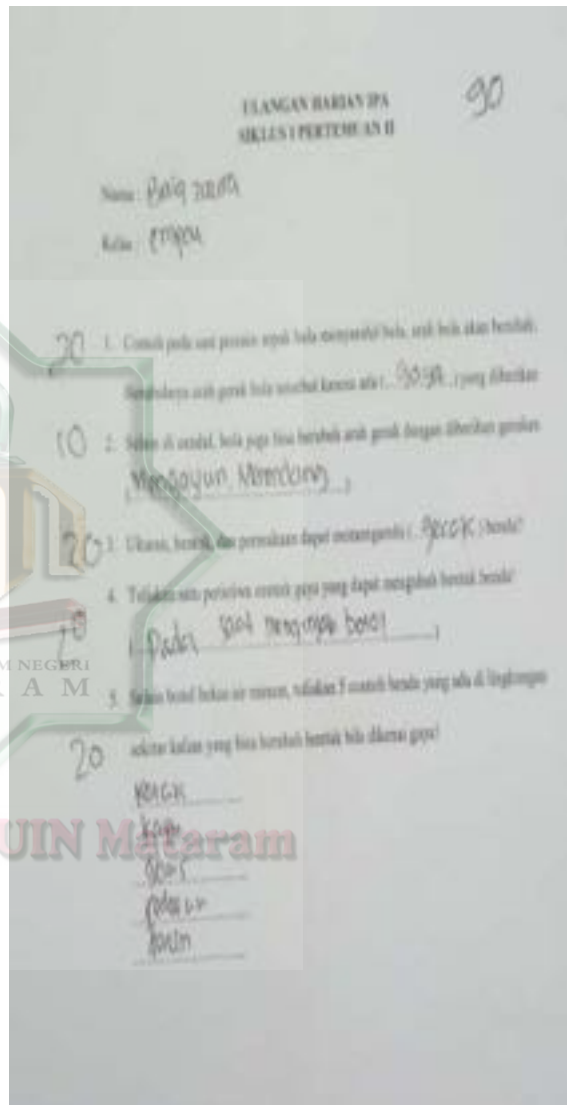 90
ULANGAN HARIAN IPA
SIKLUS I PERTEMUAN II
Nama : Baiq
Kelas : empat
20 1. Contoh pada saat pemain sepak bola menyundul bola, arah bola akan berubah.
Berubahnya arah gerak bola tersebut karena ada (..gaya..) yang diberikan
10 2. Selain di sundul, bola juga bisa berubah arah gerak dengan diberikan gerakan
( Mengayun, Menendang )
20 3. Ukuran, bentuk, dan permukaan dapat memengaruhi ( gerak ) benda?
4. Tuliskan satu peristiwa contoh gaya yang dapat mengubah bentuk benda!
20 ( Pada saat menginjak botol )
5. Selain botol bekas air minum, tuliskan 5 contoh benda yang ada di lingkungan
20 sekitar kalian yang bisa berubah bentuk bila dikenai gaya!
M NEGERI
R A M
UIN Mataram